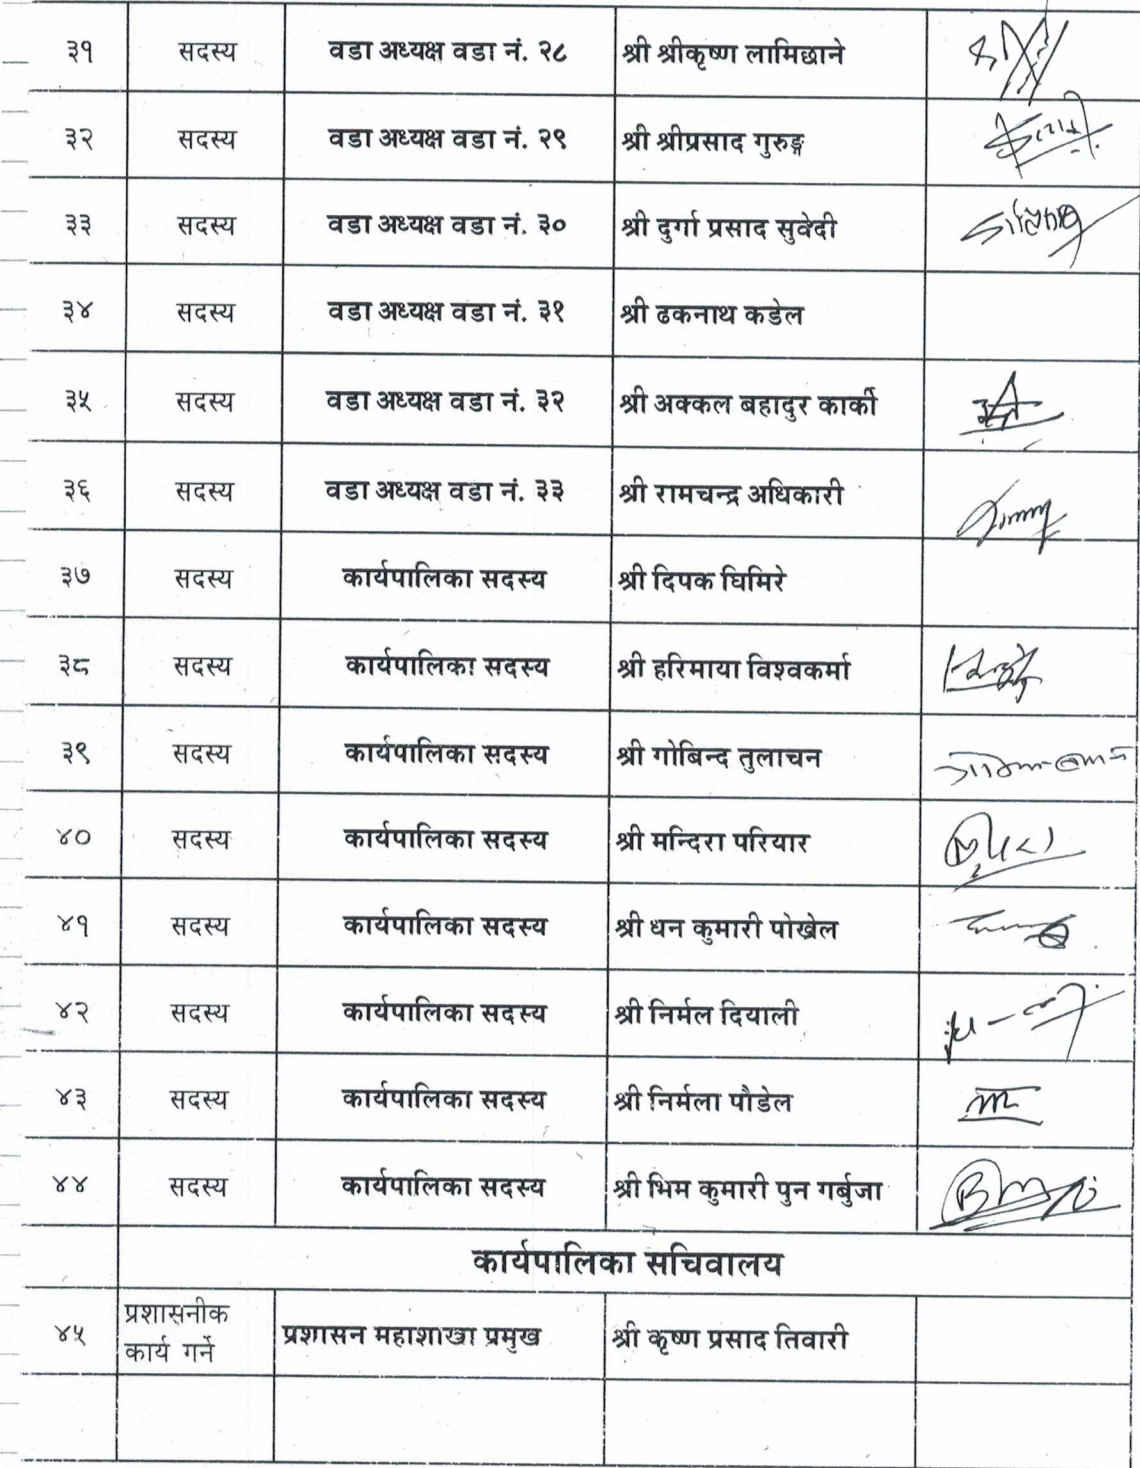 ३१ सदस्य वडा अध्यक्ष वडा नं. २८ श्री श्रीकृष्ण लामिछाने
३२ सदस्य वडा अध्यक्ष वडा नं. २९ श्री श्रीप्रसाद गुरुङ्ग
३३ सदस्य वडा अध्यक्ष वडा नं. ३० श्री दुर्गा प्रसाद सुवेदी
३४ सदस्य वडा अध्यक्ष वडा नं. ३१ श्री ढकनाथ कडेल
३५ सदस्य वडा अध्यक्ष वडा नं. ३२ श्री अक्कल बहादुर कार्की
३६ सदस्य वडा अध्यक्ष वडा नं. ३३ श्री रामचन्द्र अधिकारी
३७ सदस्य कार्यपालिका सदस्य श्री दिपक घिमिरे
३८ सदस्य कार्यपालिका सदस्य श्री हरिमाया विश्वकर्मा
३९ सदस्य कार्यपालिका सदस्य श्री गोबिन्द तुलाचन
४० सदस्य कार्यपालिका सदस्य श्री मन्दिरा परियार
४१ सदस्य कार्यपालिका सदस्य श्री धन कुमारी पोख्रेल
४२ सदस्य कार्यपालिका सदस्य श्री निर्मल दियाली
४३ सदस्य कार्यपालिका सदस्य श्री निर्मला पौडेल
४४ सदस्य कार्यपालिका सदस्य श्री भिम कुमारी पुन गर्बुजा
कार्यपालिका सचिवालय
प्रशासनीक
४५ कार्य गर्ने प्रशासन महाशाखा प्रमुख श्री कृष्ण प्रसाद तिवारी